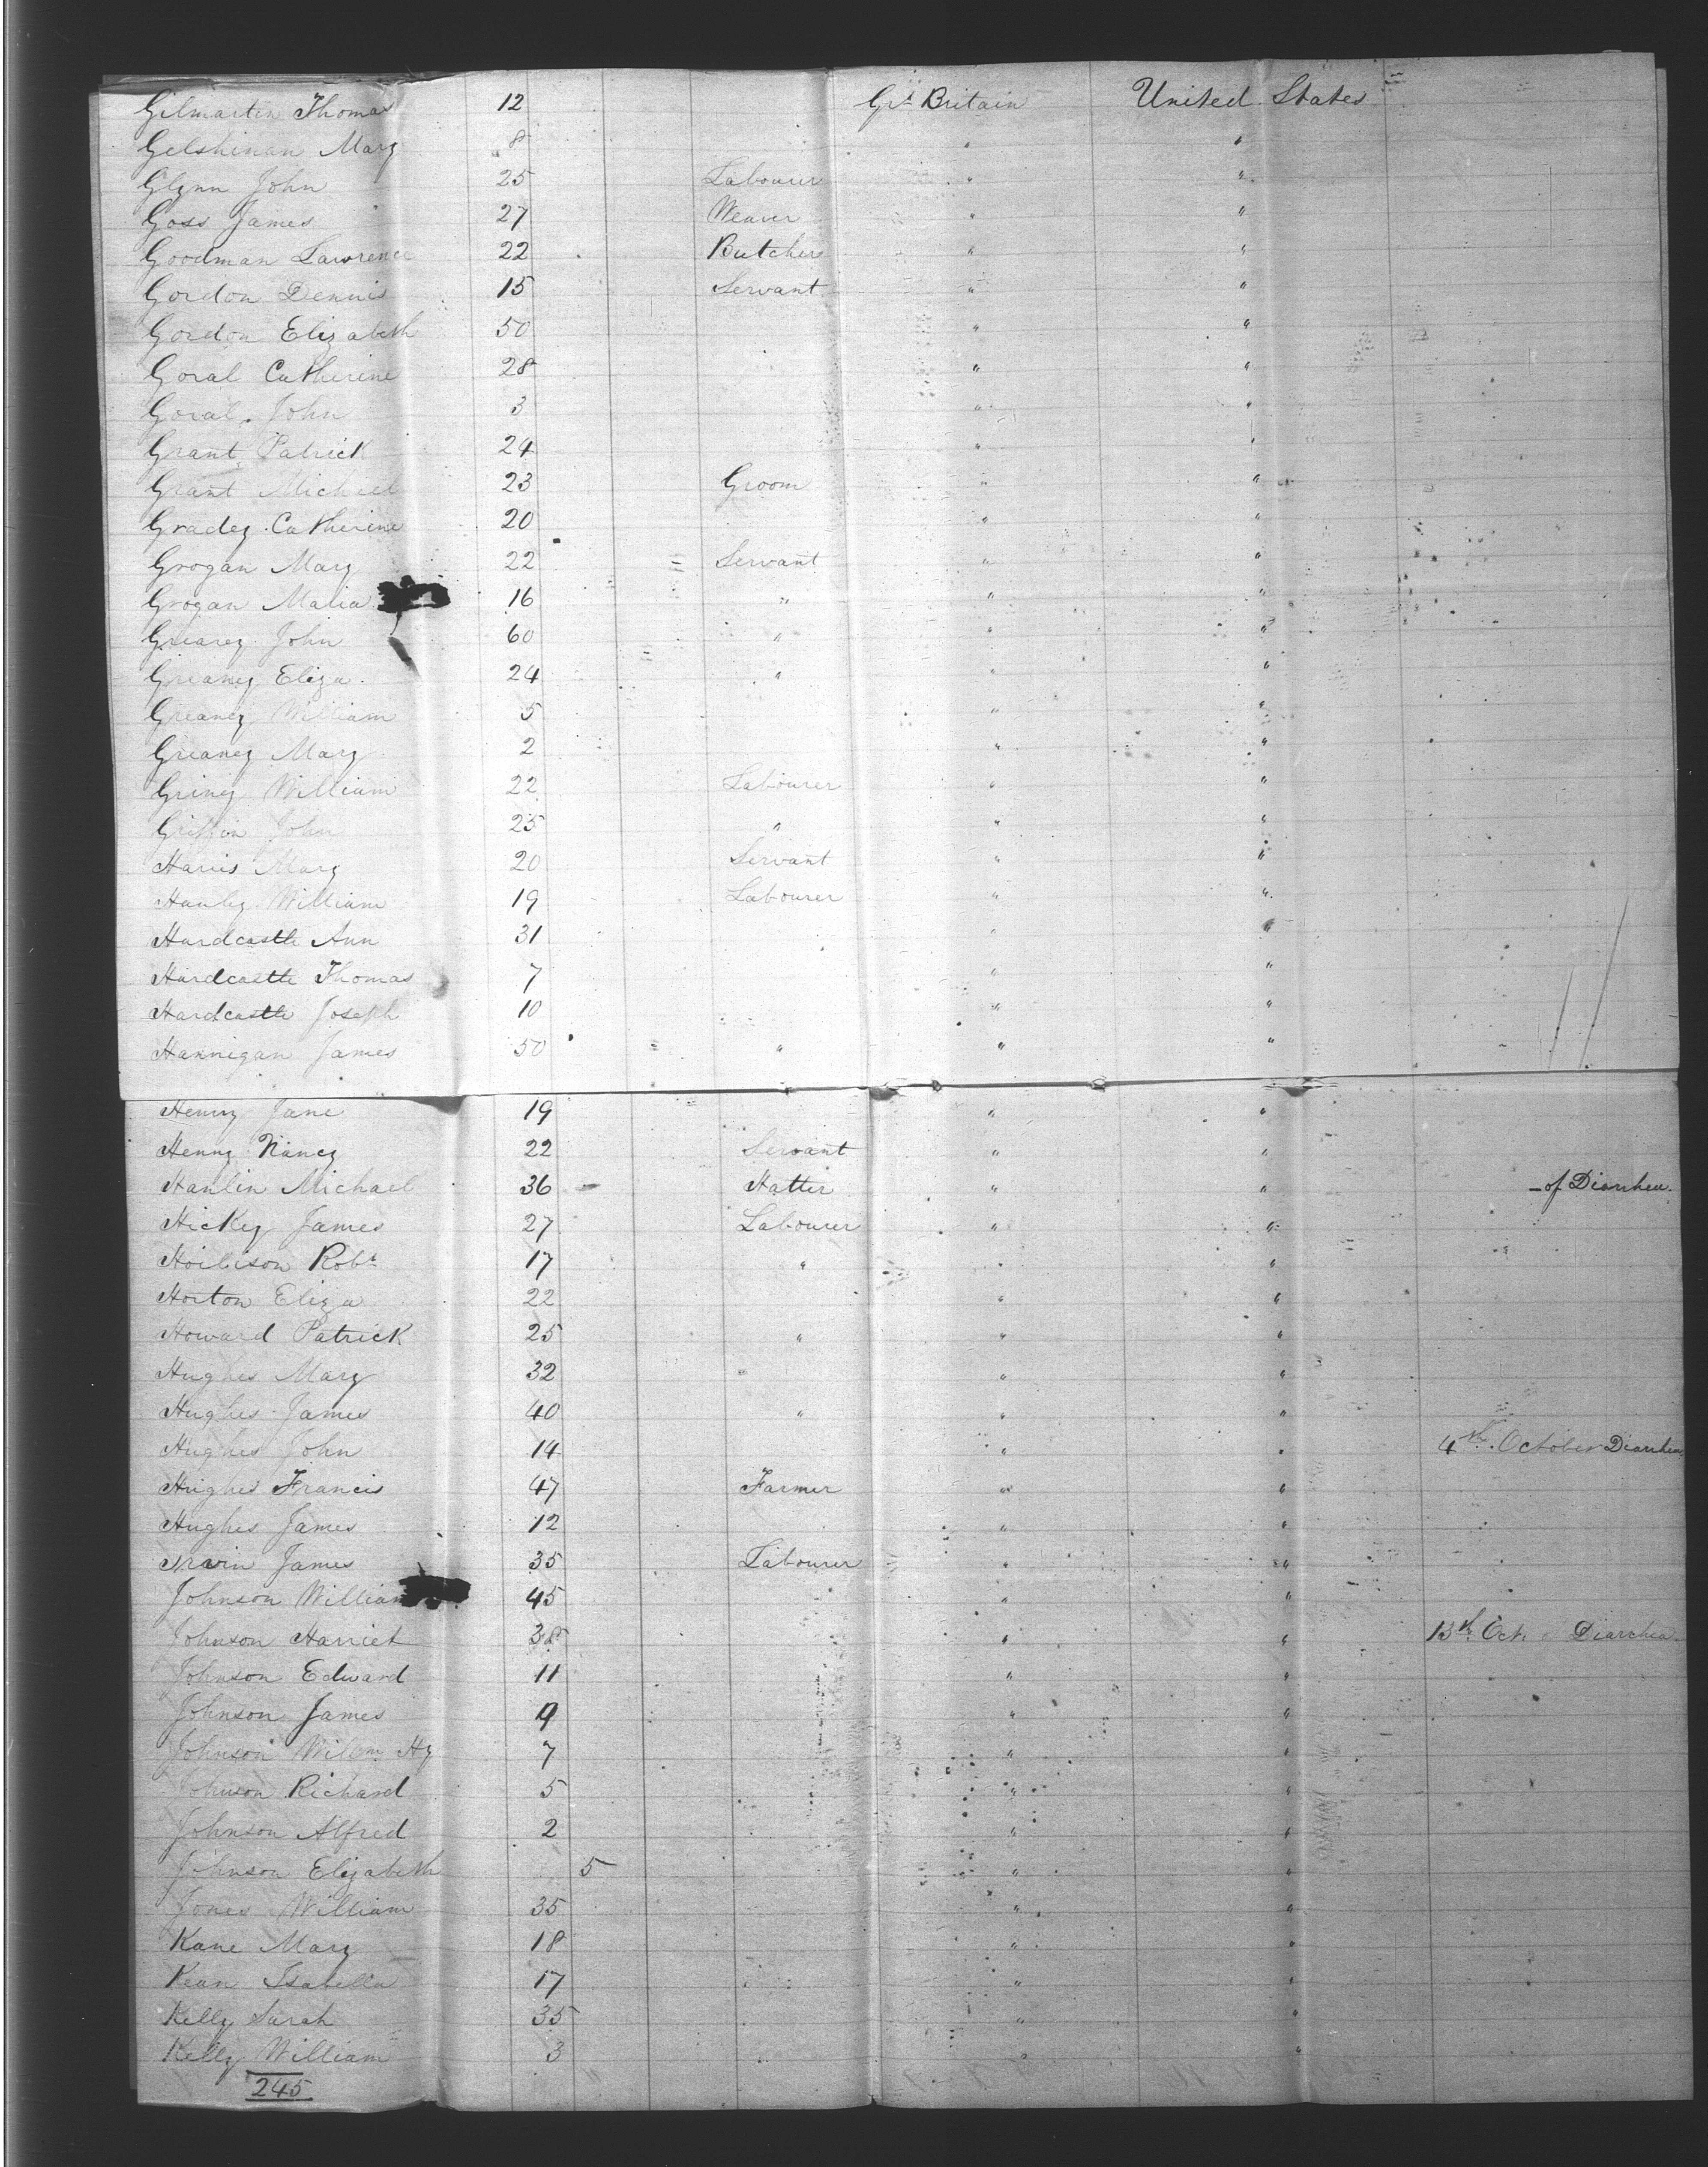 Gilmartin Thomas 12 Gt Britain United States
Gelshinan Mary 8 " "
Glynn John 25 Labourer " "
Goss James 27 Weaver " "
Goodman Lawrence 22 Butcher " "
Gordon Dennis 15 Servant " "
Gordon Elizabeth 50 " "
Goral Catherine 28 " "
Goral John 3 " "
Grant Patrick 24 " "
Grant Michael 23 Groom " "
Gradey Catherine 20 " "
Grogan Mary 22 = Servant " "
Grogan Maria 16 " " "
John 60 " " "
Greaney Eliza 24 " " "
Greaney William 5 " "
Greaney Mary 2 " "
Griney William 22 Labourer " "
Griffin John 25 " " "
Harris Mary 20 Servant " "
Hanley William 19 Labourer " "
Hardcastle Ann 31 " "
Hardcastle Thomas 7 " "
Hardcastle Joseph 10 " "
Hannigan James 50 = " " "
Henry Jane 19 " "
Henry Nancy 22 Servant " "
Hanlin Michael 36 Hatter " " - of Diarrhea.
Hickey James 27 Labourer " "
Robt 17 " " "
Horton Eliza 22 " "
Howard Patrick 25 " " "
Hughes Mary 32 " "
Hughes James 40 " " "
Hughes John 14 " " 4th October Diarrhea
Hughes Francis 47 Farmer " "
Hughes James 12 " "
Irwin James 35 Labourer " "
Johnson William 45 " "
Johnson Harriet 38 " " 13th Oct. Diarrhea
Johnson Edward 11 " "
Johnson James 9 " "
Johnson Willm Hy 7 " "
Johnson Richard 5 " "
Johnson Alfred 2 " "
Johnson Elizabeth 5 " "
Jones William 35 " "
Kane Mary 18 " "
Kean Isabella 17 " "
Kelly Sarah 35 " "
Kelly William 3 " "
245